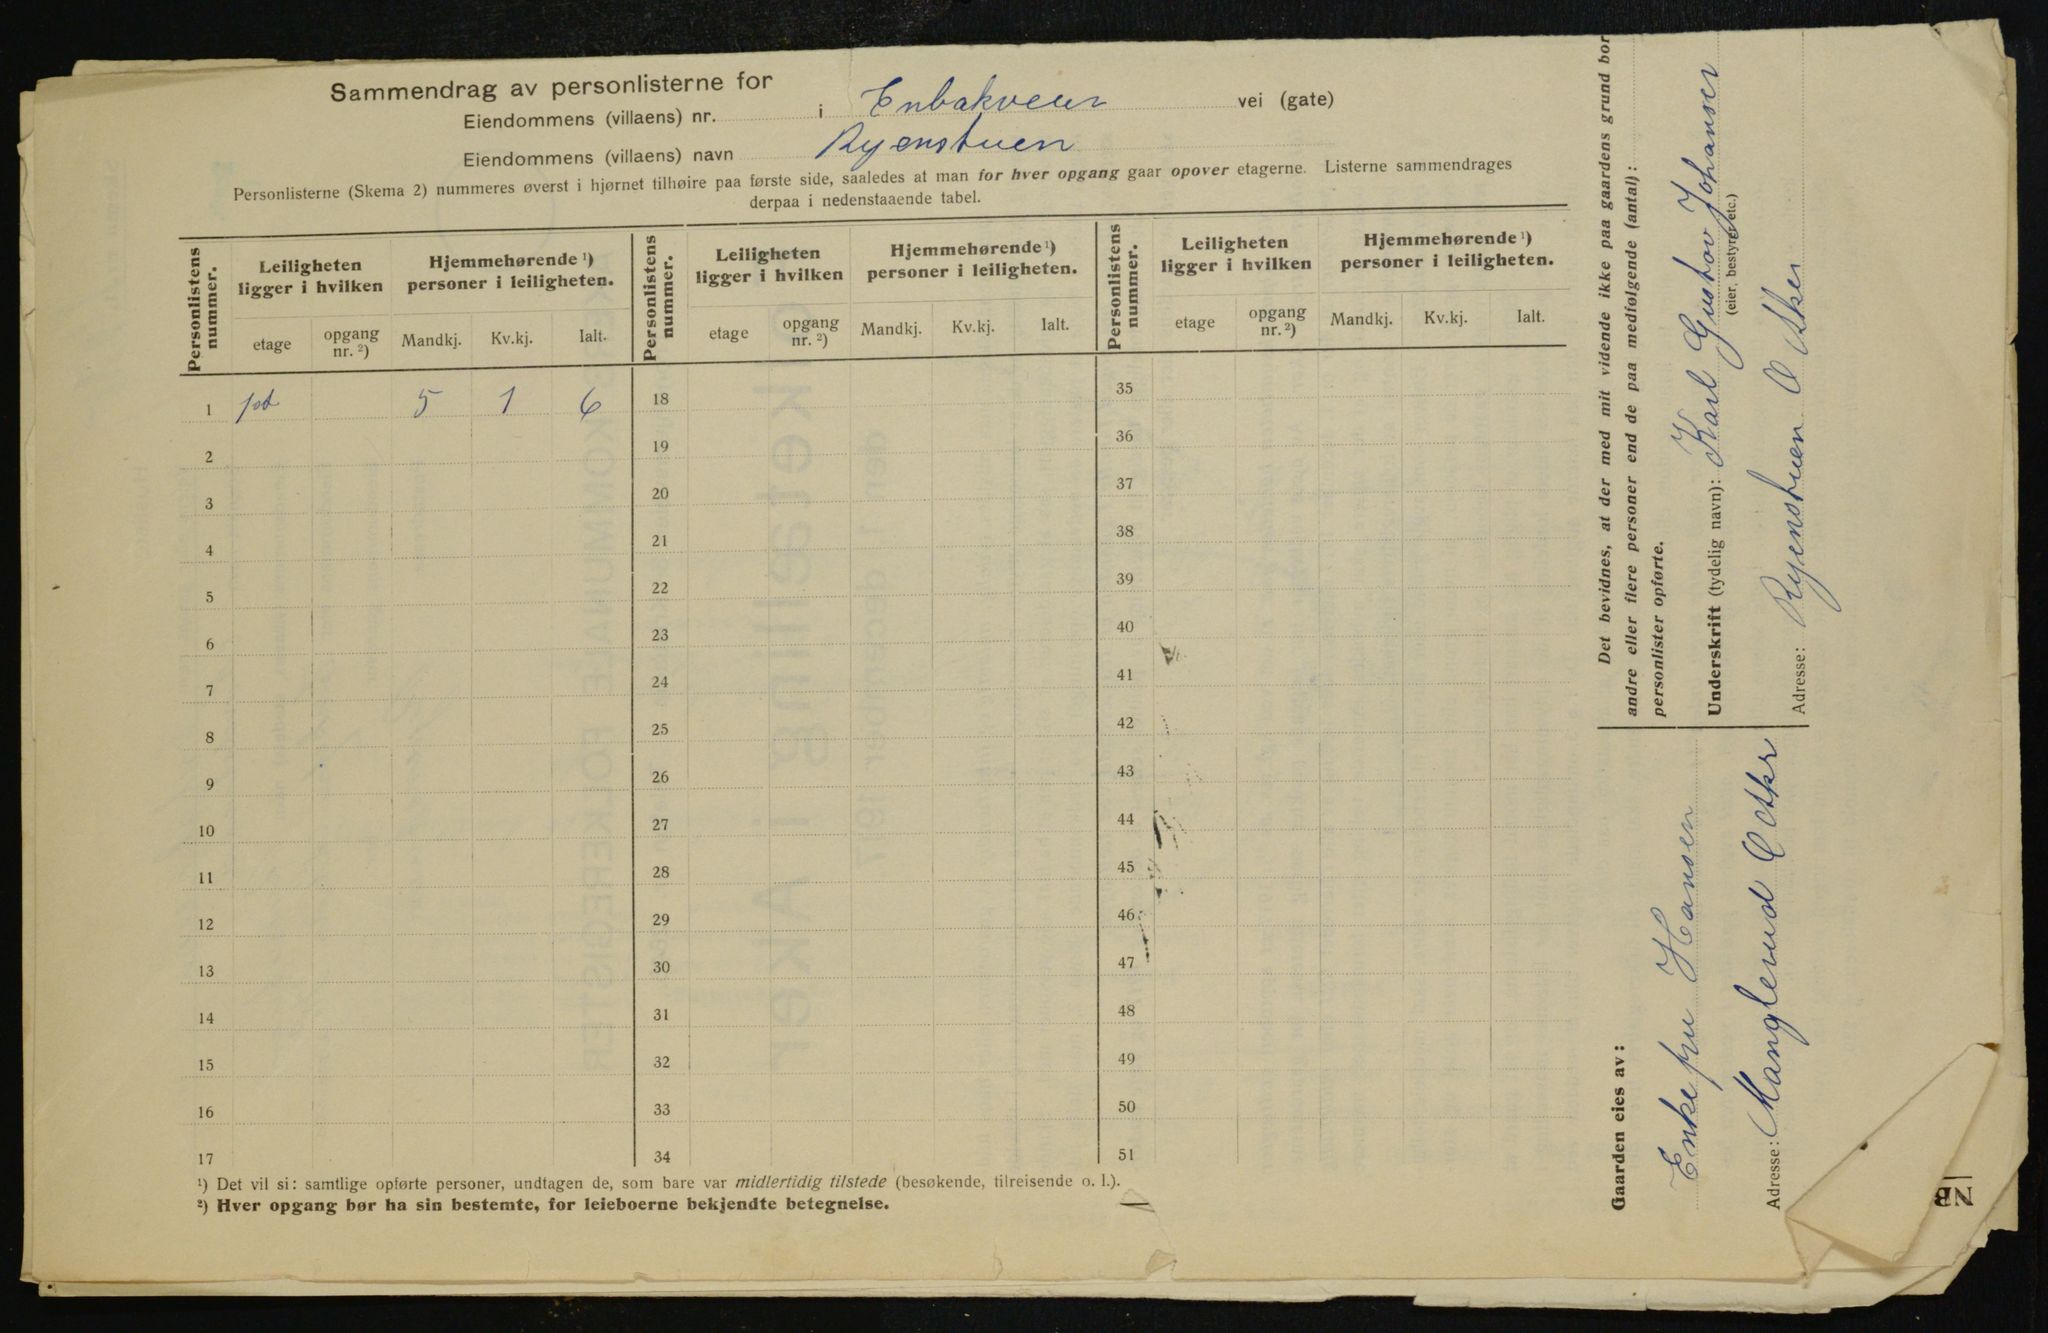 Sammendrag av personlisterne for
Eiendommens (villaens) nr. i Enbakveien vei (gate)
Eiendommens (villaens) navn Ryenstuen
Personlisterne (Skema 2) nummeres øverst i hjørnet tilhøire paa første side, saaledes at man for hver opgang gaar opover etagerne. Listerne sammendrages
derpaa i nedenstaaende tabel.
Personlistens nummer. Leiligheten ligger i hvilken Hjemmehørende ¹) personer i leiligheten. Personlistens nummer. Leiligheten ligger i hvilken Hjemmehørende ¹) personer i leiligheten. Personlistens nummer. Leiligheten ligger i hvilken Hjemmehørende ¹) personer i leiligheten.
etage opgang nr. ²) Mandkj. Kv.kj. Ialt. etage opgang nr. ²) Mandkj. Kv.kj. Ialt. etage opgang nr. ²) Mandkj. Kv.kj. Ialt.
1 1st 5 1 6 18 35
2 19 36
3 20 37
4 21 38
5 22 39
6 23 40
7 24 41
8 25 42
9 26 43
10 27 44
11 28 45
12 29 46
13 30 47
14 31 48
15 32 49
16 33 50
17 34 51
¹) Det vil si: samtlige opførte personer, undtagen de, som bare var midlertidig tilstede (besøkende, tilreisende o. l.).
²) Hver opgang bør ha sin bestemte, for leieboerne bekjendte betegnelse.
Det bevidnes, at der med mit vidende ikke paa gaardens grund bor
andre eller flere personer end de paa medfølgende (antal):
personlister opførte.
Underskrift (tydelig navn): Karl Gustav Johansen
(eier, bestyrer etc.)
Adresse: Ryenstuen Ø Aker
Gaarden eies av:
Enkefru Hansen
Adresse: Manglerud Ø Aker
NB